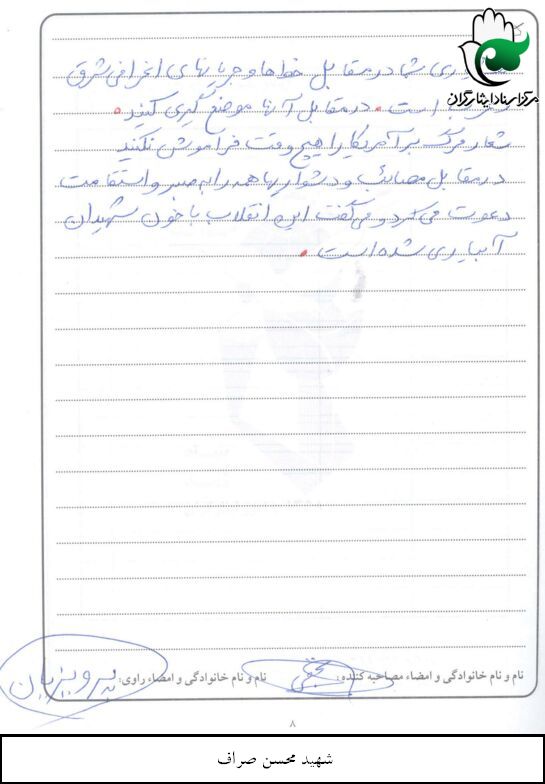 مرکز اسناد ایثارگران
ری شما در مقابل خطها و جریانهای انحرافی شرق
است. در مقابل آنها موضع گیری کنید.
شعار مرگ بر آمریکا را هیچ وقت فراموش نکنید
در مقابل مصائب و دشواریها همه را به صبر و استقامت
دعوت می کرد و می گفت این انقلاب با خون شهیدان
آبیاری شده است.
نام و نام خانوادگی و امضاء مصاحبه کننده:
نام و نام خانوادگی و امضاء راوی:
۸
شهید محسن صراف